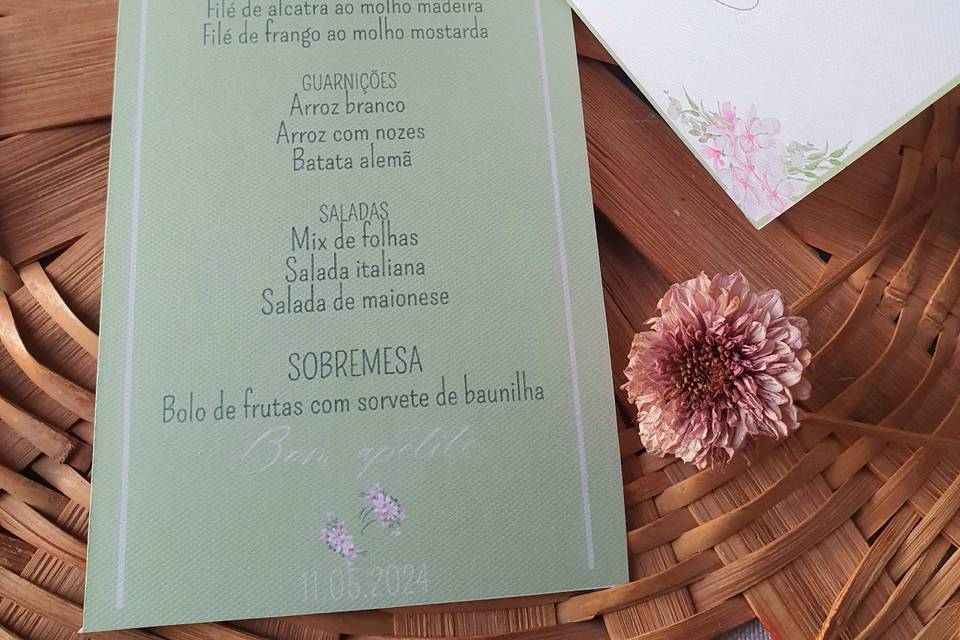 Filé de alcatra ao molho madeira
Filé de frango ao molho mostarda
GUARNIÇÕES
Arroz branco
Arroz com nozes
Batata alemã
SALADAS
Mix de folhas
Salada italiana
Salada de maionese
SOBREMESA
Bolo de frutas com sorvete de baunilha
Bom apetite
11.05.2024